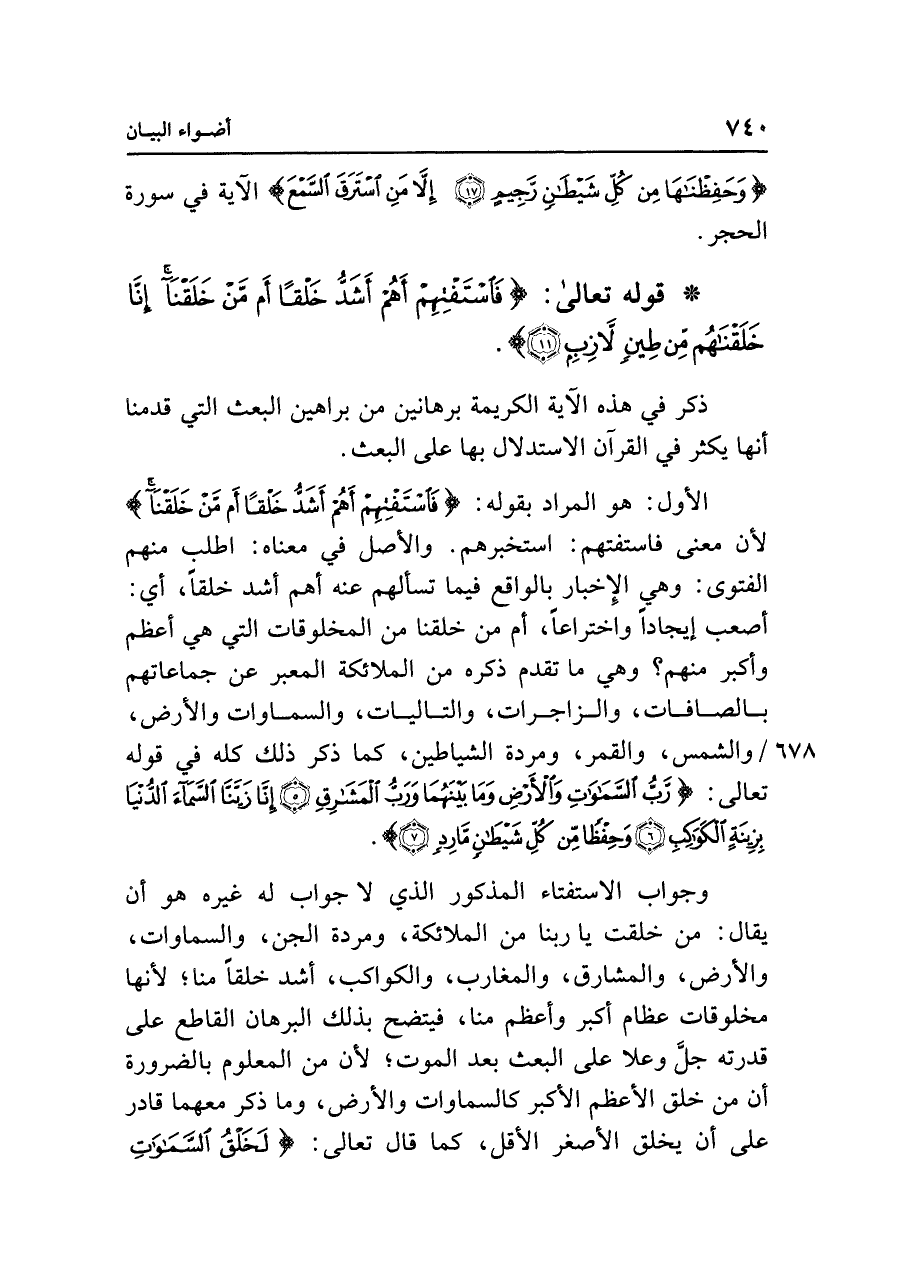 ٧٤٠ أضواء البيان
﴿وَحَفِظْنَٰهَا مِن كُلِّ شَيْطَٰنٍ رَّجِيمٍ ۝١٧ إِلَّا مَنِ ٱسْتَرَقَ ٱلسَّمْعَ﴾ الآية في سورة
الحجر.
* قوله تعالىٰ: ﴿فَٱسْتَفْتِهِمْ أَهُمْ أَشَدُّ خَلْقًا أَم مَّنْ خَلَقْنَآ ۚ إِنَّا
خَلَقْنَٰهُم مِّن طِينٍ لَّازِبٍ ۝١١﴾.
ذكر في هذه الآية الكريمة برهانين من براهين البعث التي قدمنا
أنها يكثر في القرآن الاستدلال بها على البعث.
الأول: هو المراد بقوله: ﴿فَٱسْتَفْتِهِمْ أَهُمْ أَشَدُّ خَلْقًا أَم مَّنْ خَلَقْنَآ ۚ﴾
لأن معنى فاستفتهم: استخبرهم. والأصل في معناه: اطلب منهم
الفتوى: وهي الإخبار بالواقع فيما تسألهم عنه أهم أشد خلقاً، أي:
أصعب إيجاداً واختراعاً، أم من خلقنا من المخلوقات التي هي أعظم
وأكبر منهم؟ وهي ما تقدم ذكره من الملائكة المعبر عن جماعاتهم
بالصافات، والزاجرات، والتاليات، والسماوات والأرض،
٦٧٨ /والشمس، والقمر، ومردة الشياطين، كما ذكر ذلك كله في قوله
تعالى: ﴿رَّبُّ ٱلسَّمَٰوَٰتِ وَٱلْأَرْضِ وَمَا بَيْنَهُمَا وَرَبُّ ٱلْمَشَٰرِقِ ۝٥ إِنَّا زَيَّنَّا ٱلسَّمَآءَ ٱلدُّنْيَا
بِزِينَةٍ ٱلْكَوَاكِبِ ۝٦ وَحِفْظًا مِّن كُلِّ شَيْطَٰنٍ مَّارِدٍ ۝٧﴾.
وجواب الاستفتاء المذكور الذي لا جواب له غيره هو أن
يقال: من خلقت يا ربنا من الملائكة، ومردة الجن، والسماوات،
والأرض، والمشارق، والمغارب، والكواكب، أشد خلقاً منا؛ لأنها
مخلوقات عظام أكبر وأعظم منا، فيتضح بذلك البرهان القاطع على
قدرته جلَّ وعلا على البعث بعد الموت؛ لأن من المعلوم بالضرورة
أن من خلق الأعظم الأكبر كالسماوات والأرض، وما ذكر معهما قادر
على أن يخلق الأصغر الأقل، كما قال تعالى: ﴿لَخَلْقُ ٱلسَّمَٰوَٰتِ